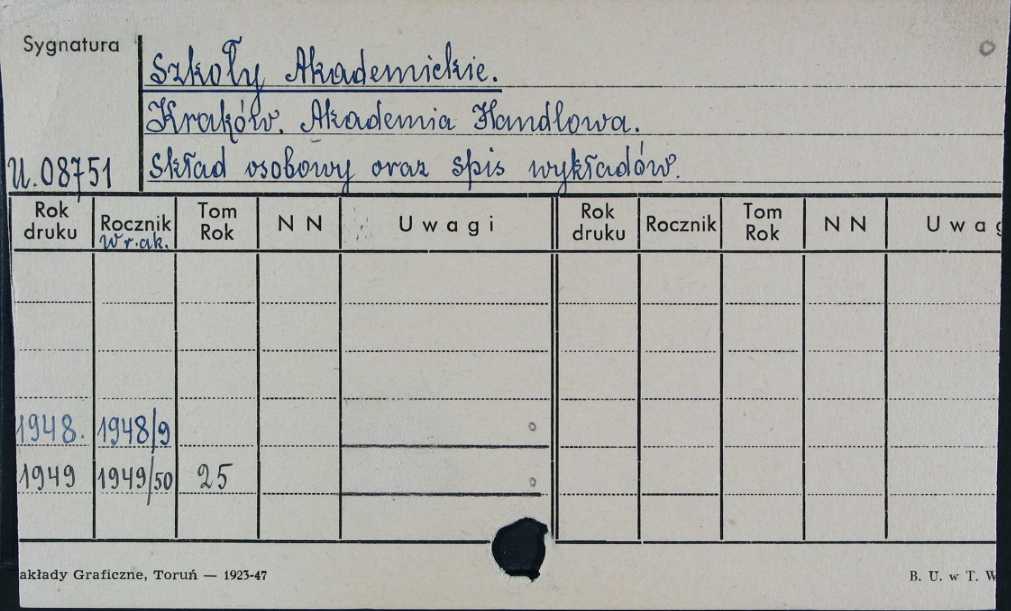 Sygnatura
Szkoły Akademickie.
Kraków. Akademia Handlowa.
U.08751 Skład osobowy oraz spis wykładów.
Rok druku Rocznik Tom Rok N N Uwagi Rok druku Rocznik Tom Rok N N Uwag
W r.ak.
1948. 1948/9
1949 1949/50 25
akłady Graficzne, Toruń — 1923-47 B. U. w T. W